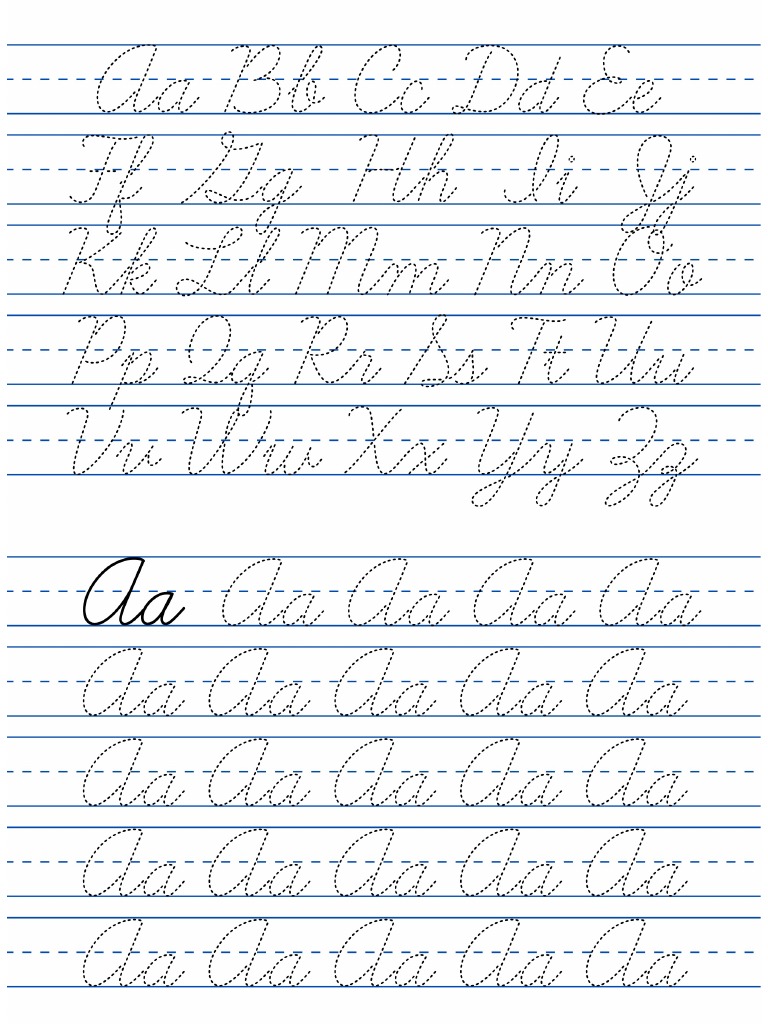 Aa Bb Cc Dd Ee
Ff Gg Hh Ii Jj
Kk Ll Mm Nn Oo
Pp Qq Rr Ss Tt Uu
Vv Ww Xx Yy Zz
Aa Aa Aa Aa Aa
Aa Aa Aa Aa Aa
Aa Aa Aa Aa Aa
Aa Aa Aa Aa Aa
Aa Aa Aa Aa Aa